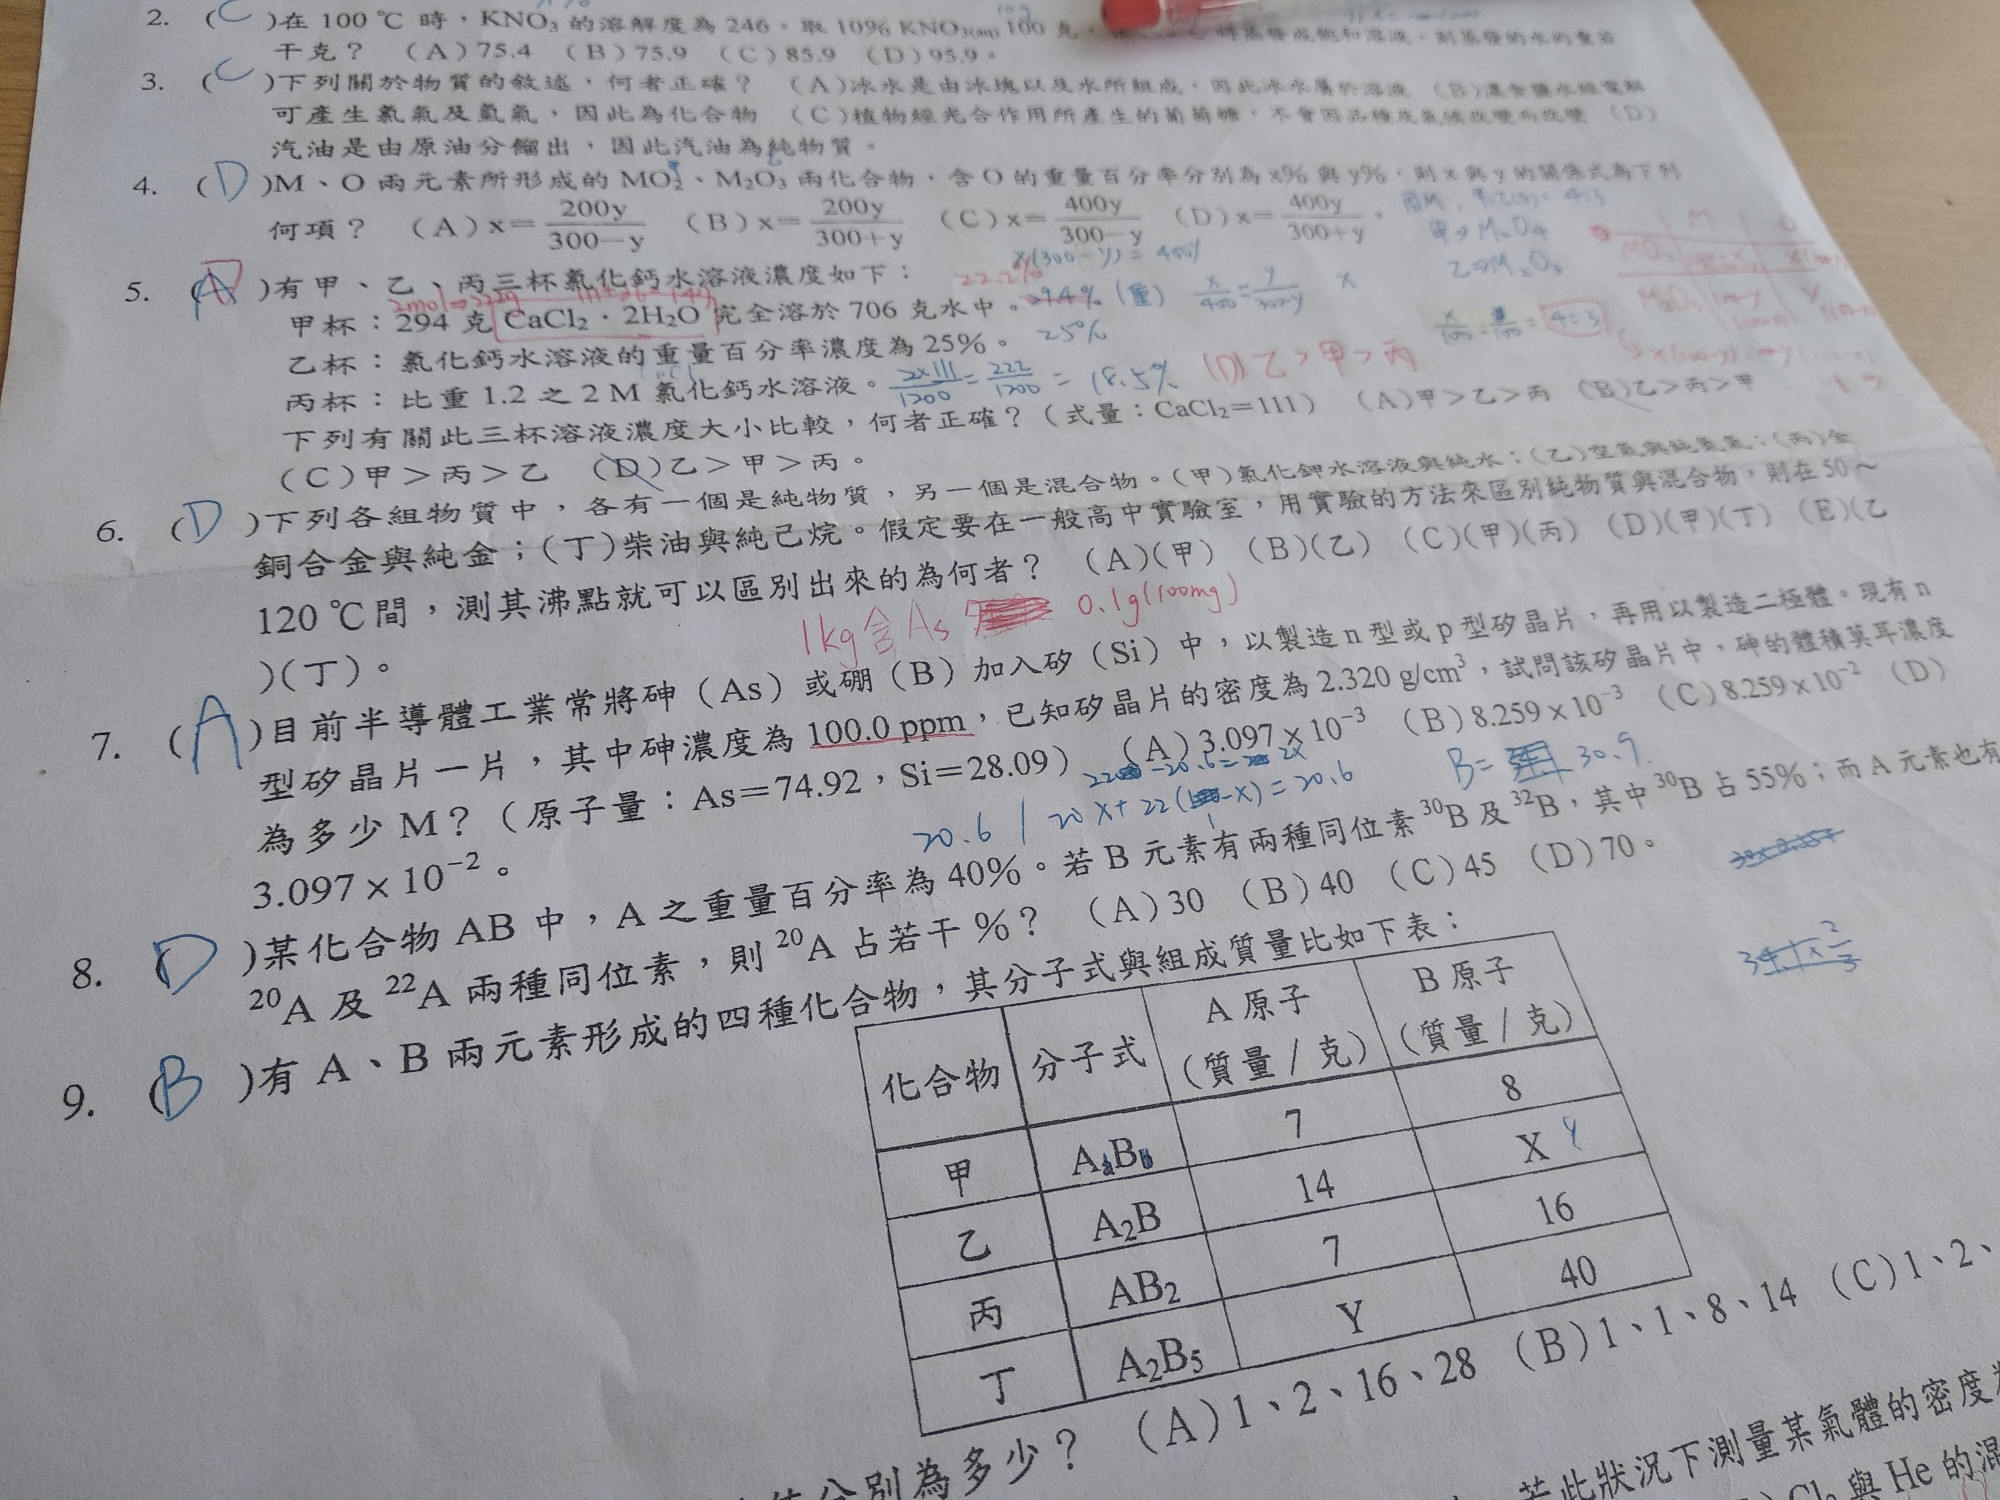 2. (C)在 100 ℃ 時，KNO₃ 的溶解度為 246。取 10% KNO₃(aq) 100 克，
干克？ (A)75.4 (B)75.9 (C)85.9 (D)95.9。
3. (C)下列關於物質的敘述，何者正確？ (A)冰水是由冰塊以及水所組成，因此冰水屬於溶液 (B)濃食鹽水經電解
可產生氯氣及氫氣，因此為化合物 (C)植物經光合作用所產生的葡萄糖，不會因品種及氣候改變而改變 (D)
汽油是由原油分餾出，因此汽油為純物質。
4. (D)M、O 兩元素所形成的 MO₂、M₂O₃ 兩化合物，含 O 的重量百分率分別為 x% 與 y%，則 x 與 y 的關係式為下列
何項？ (A)x=200y/300−y (B)x=200y/300+y (C)x=400y/300−y (D)x=400y/300+y。
x(300-y)=400y
5. (A)有甲、乙、丙三杯氯化鈣水溶液濃度如下：
22.2%
2mol⇒222g
甲杯：294 克 CaCl₂．2H₂O 完全溶於 706 克水中。29.4% (重) x/400=y/300-y
乙杯：氯化鈣水溶液的重量百分率濃度為 25%。 25%
丙杯：比重 1.2 之 2 M 氯化鈣水溶液。 2×111/1200=222/1200=18.5% (D)乙>甲>丙
下列有關此三杯溶液濃度大小比較，何者正確？（式量：CaCl₂=111） (A)甲＞乙＞丙 (B)乙＞丙＞甲
(C)甲＞丙＞乙 (D)乙＞甲＞丙。
6. (D)下列各組物質中，各有一個是純物質，另一個是混合物。(甲)氯化鉀水溶液與純水；(乙)空氣與純氮氣；(丙)金
銅合金與純金；(丁)柴油與純己烷。假定要在一般高中實驗室，用實驗的方法來區別純物質與混合物，則在 50～
120 ℃間，測其沸點就可以區別出來的為何者？ (A)(甲) (B)(乙) (C)(甲)(丙) (D)(甲)(丁) (E)(乙
)(丁)。
1kg含As 0.1g(100mg)
7. (A)目前半導體工業常將砷（As）或硼（B）加入矽（Si）中，以製造 n 型或 p 型矽晶片，再用以製造二極體。現有 n
型矽晶片一片，其中砷濃度為 100.0 ppm，已知矽晶片的密度為 2.320 g/cm³，試問該矽晶片中，砷的體積莫耳濃度
為多少 M？（原子量：As=74.92，Si=28.09） (A)3.097×10⁻³ (B)8.259×10⁻³ (C)8.259×10⁻² (D)
3.097×10⁻²。
B= 30.9
20.6 / 20X+22( -X)=20.6
8. (D)某化合物 AB 中，A 之重量百分率為 40%。若 B 元素有兩種同位素 ³⁰B 及 ³²B，其中 ³⁰B 占 55%；而 A 元素也有
²⁰A 及 ²²A 兩種同位素，則 ²⁰A 占若干 %？ (A)30 (B)40 (C)45 (D)70。
9. (B)有 A、B 兩元素形成的四種化合物，其分子式與組成質量比如下表：
化合物 分子式 A 原子（質量／克） B 原子（質量／克）
甲 AaBb 7 8
乙 A₂B 14 X
丙 AB₂ 7 16
丁 A₂B₅ Y 40
分別為多少？ (A)1、2、16、28 (B)1、1、8、14 (C)1、2、
若此狀況下測量某氣體的密度
Cl₂ 與 He 的混